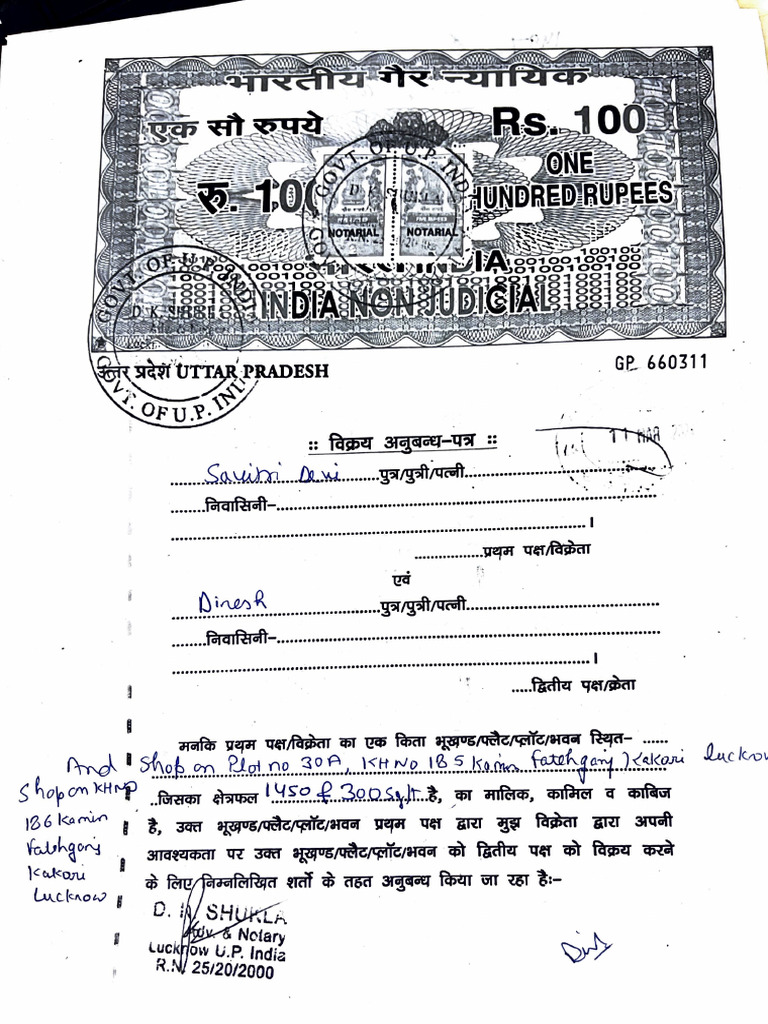 भारतीय गैर न्यायिक
एक सौ रुपये
Rs. 100
ONE
रु. 100
HUNDRED RUPEES
GOVT. OF U.P. INDIA
NOTARIAL NOTARIAL
INDIA
INDIA NON JUDICIAL
GOVT. OF U.P. INDIA
GOVT. OF U.P. INDIA
उत्तर प्रदेश UTTAR PRADESH
GP 660311
:: विक्रय अनुबन्ध-पत्र ::
11 MAR
Savitri Devi पुत्र/पुत्री/पत्नी
निवासिनी-
।
प्रथम पक्ष/विक्रेता
एवं
Dinesh पुत्र/पुत्री/पत्नी
निवासिनी-
।
द्वितीय पक्ष/क्रेता
मनकि प्रथम पक्ष/विक्रेता का एक किता भूखण्ड/फ्लैट/प्लॉट/भवन स्थित-
Shop on Plot no 30A, KH No 185 Kamin Fatehganj Kakori Lucknow
And
Shop on KH NO
186 Kamin
Fatehganj
Kakari
Lucknow
जिसका क्षेत्रफल 1450 & 300 Sqft है, का मालिक, कामिल व काबिज
है, उक्त भूखण्ड/फ्लैट/प्लॉट/भवन प्रथम पक्ष द्वारा मुझ विक्रेता द्वारा अपनी
आवश्यकता पर उक्त भूखण्ड/फ्लैट/प्लॉट/भवन को द्वितीय पक्ष को विक्रय करने
के लिए निम्नलिखित शर्तो के तहत अनुबन्ध किया जा रहा हैः-
D. K. SHUKLA
Adv. & Notary
Lucknow U.P. India
R.N. 25/20/2000